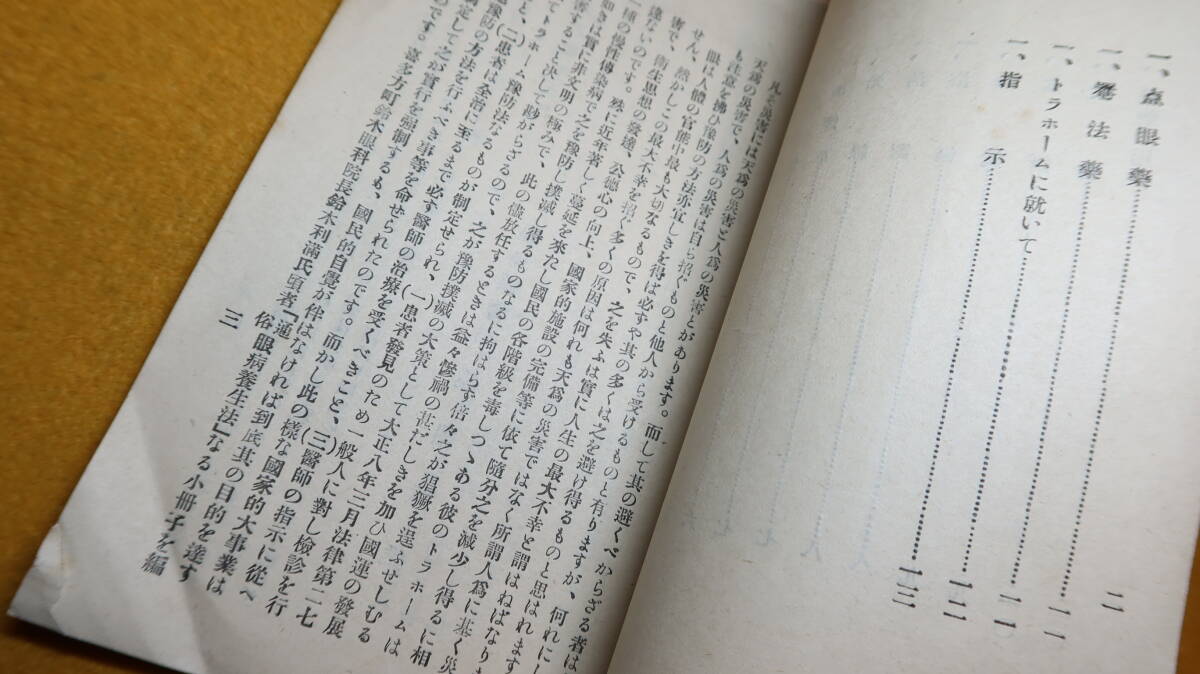 一、点眼藥……二
一、罨法藥……一一
一、トラホームに就いて……一一
一、指示……一二
一三
凡そ災害には天爲の災害と人爲の災害とがあります。而して其の避くべからざる者は
天爲の災害で、人爲の災害は自ら招くものと他人から受けるものと有りますが、何れにし
も注意を拂ひ豫防の方法亦宜しきを得ば必ずや其の多くは之を避け得るものと思はれます
眼は人體の官能中最も大切なるもので、之を失ふは實に人生の最大不幸と謂はねばなりま
せん、然かしこの最大不幸を招く多くの原因は何れも天爲の災害ではなく所謂人爲に基く災
害で、衛生思想の發達、公德心の向上、國家的施設の完備等に依て隨分之を減少し得るに相
違ないのです。殊に近年著しく蔓延を來たし國民の各階級を毒しつゝある彼のトラホームは
一種の慢性傳染病で之を豫防し撲滅し得るものなるに拘はらず倍々之が猖獗を逞ふせしむる
如きは實に非文明の極みで、此の儘放任するときは益々慘禍の甚だしきを加ひ國運の發展
害すること決して尠がらざるので、之が豫防撲滅の大策として大正八年三月法律第二七
てトラホーム豫防法なるものが制定せられ、(一)患者發見のため一般人に對し檢診を行
と、(二)患者は全治に至るまで必ず醫師の治療を受くべきこと、(三)醫師の指示に從へ
豫防の方法を行ふべき事等を命せられたのです。而かし此の樣な國家的大事業は
制定して之が實行を强制するも、國民的自覺が伴はなければ到底其の目的を達す
のです。喜多方町鈴木眼科院長鈴木利滿氏頃者「通俗眼病養生法」なる小冊子を編
三